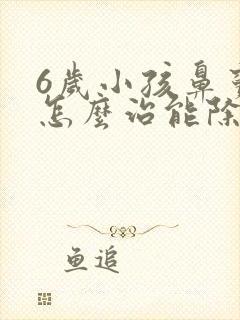 6歲小孩鼻
怎麼治能除
鱼追